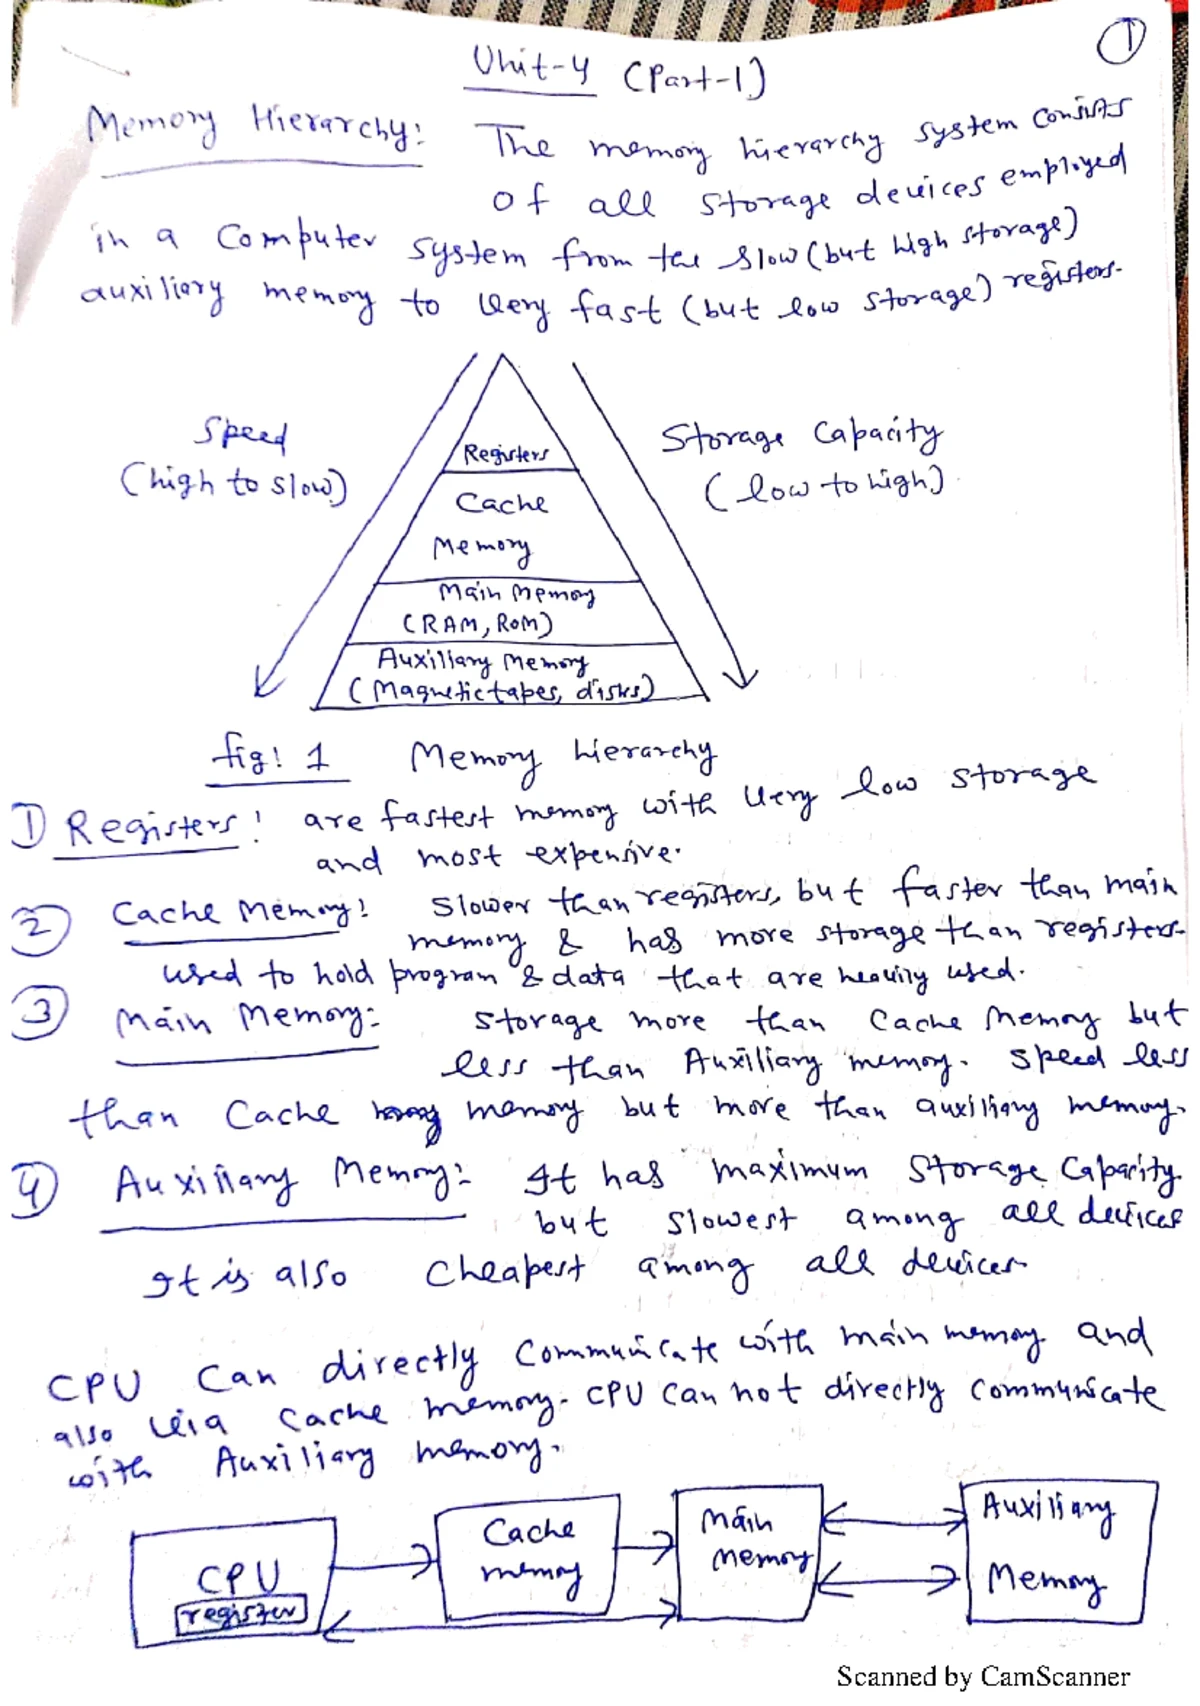 1
Unit-4 (Part-1)
Memory Hierarchy: The memory hierarchy system consists
of all storage devices employed
in a computer system from the slow (but high storage)
auxiliary memory to very fast (but low storage) registers.
Speed
(high to slow)
Storage Capacity
(low to high).
Registers
Cache
Memory
Main Memory
(RAM, ROM)
Auxiliary Memory
(Magnetic tapes, disks)
fig: 1 Memory hierarchy
1) Registers: are fastest memory with very low storage
and most expensive.
2 Cache Memory: Slower than registers, but faster than main
memory & has more storage than registers.
used to hold program & data that are heavily used.
3 Main Memory: Storage more than Cache Memory but
less than Auxiliary memory. Speed less
than Cache memory but more than auxiliary memory.
4 Auxiliary Memory: It has maximum Storage Capacity
but slowest among all devices
It is also Cheapest among all devices
CPU Can directly Communicate with main memory and
also via Cache memory. CPU Can not directly Communicate
with Auxiliary memory.
CPU
register
Cache
memory
Main
memory
Auxiliary
Memory
Scanned by CamScanner